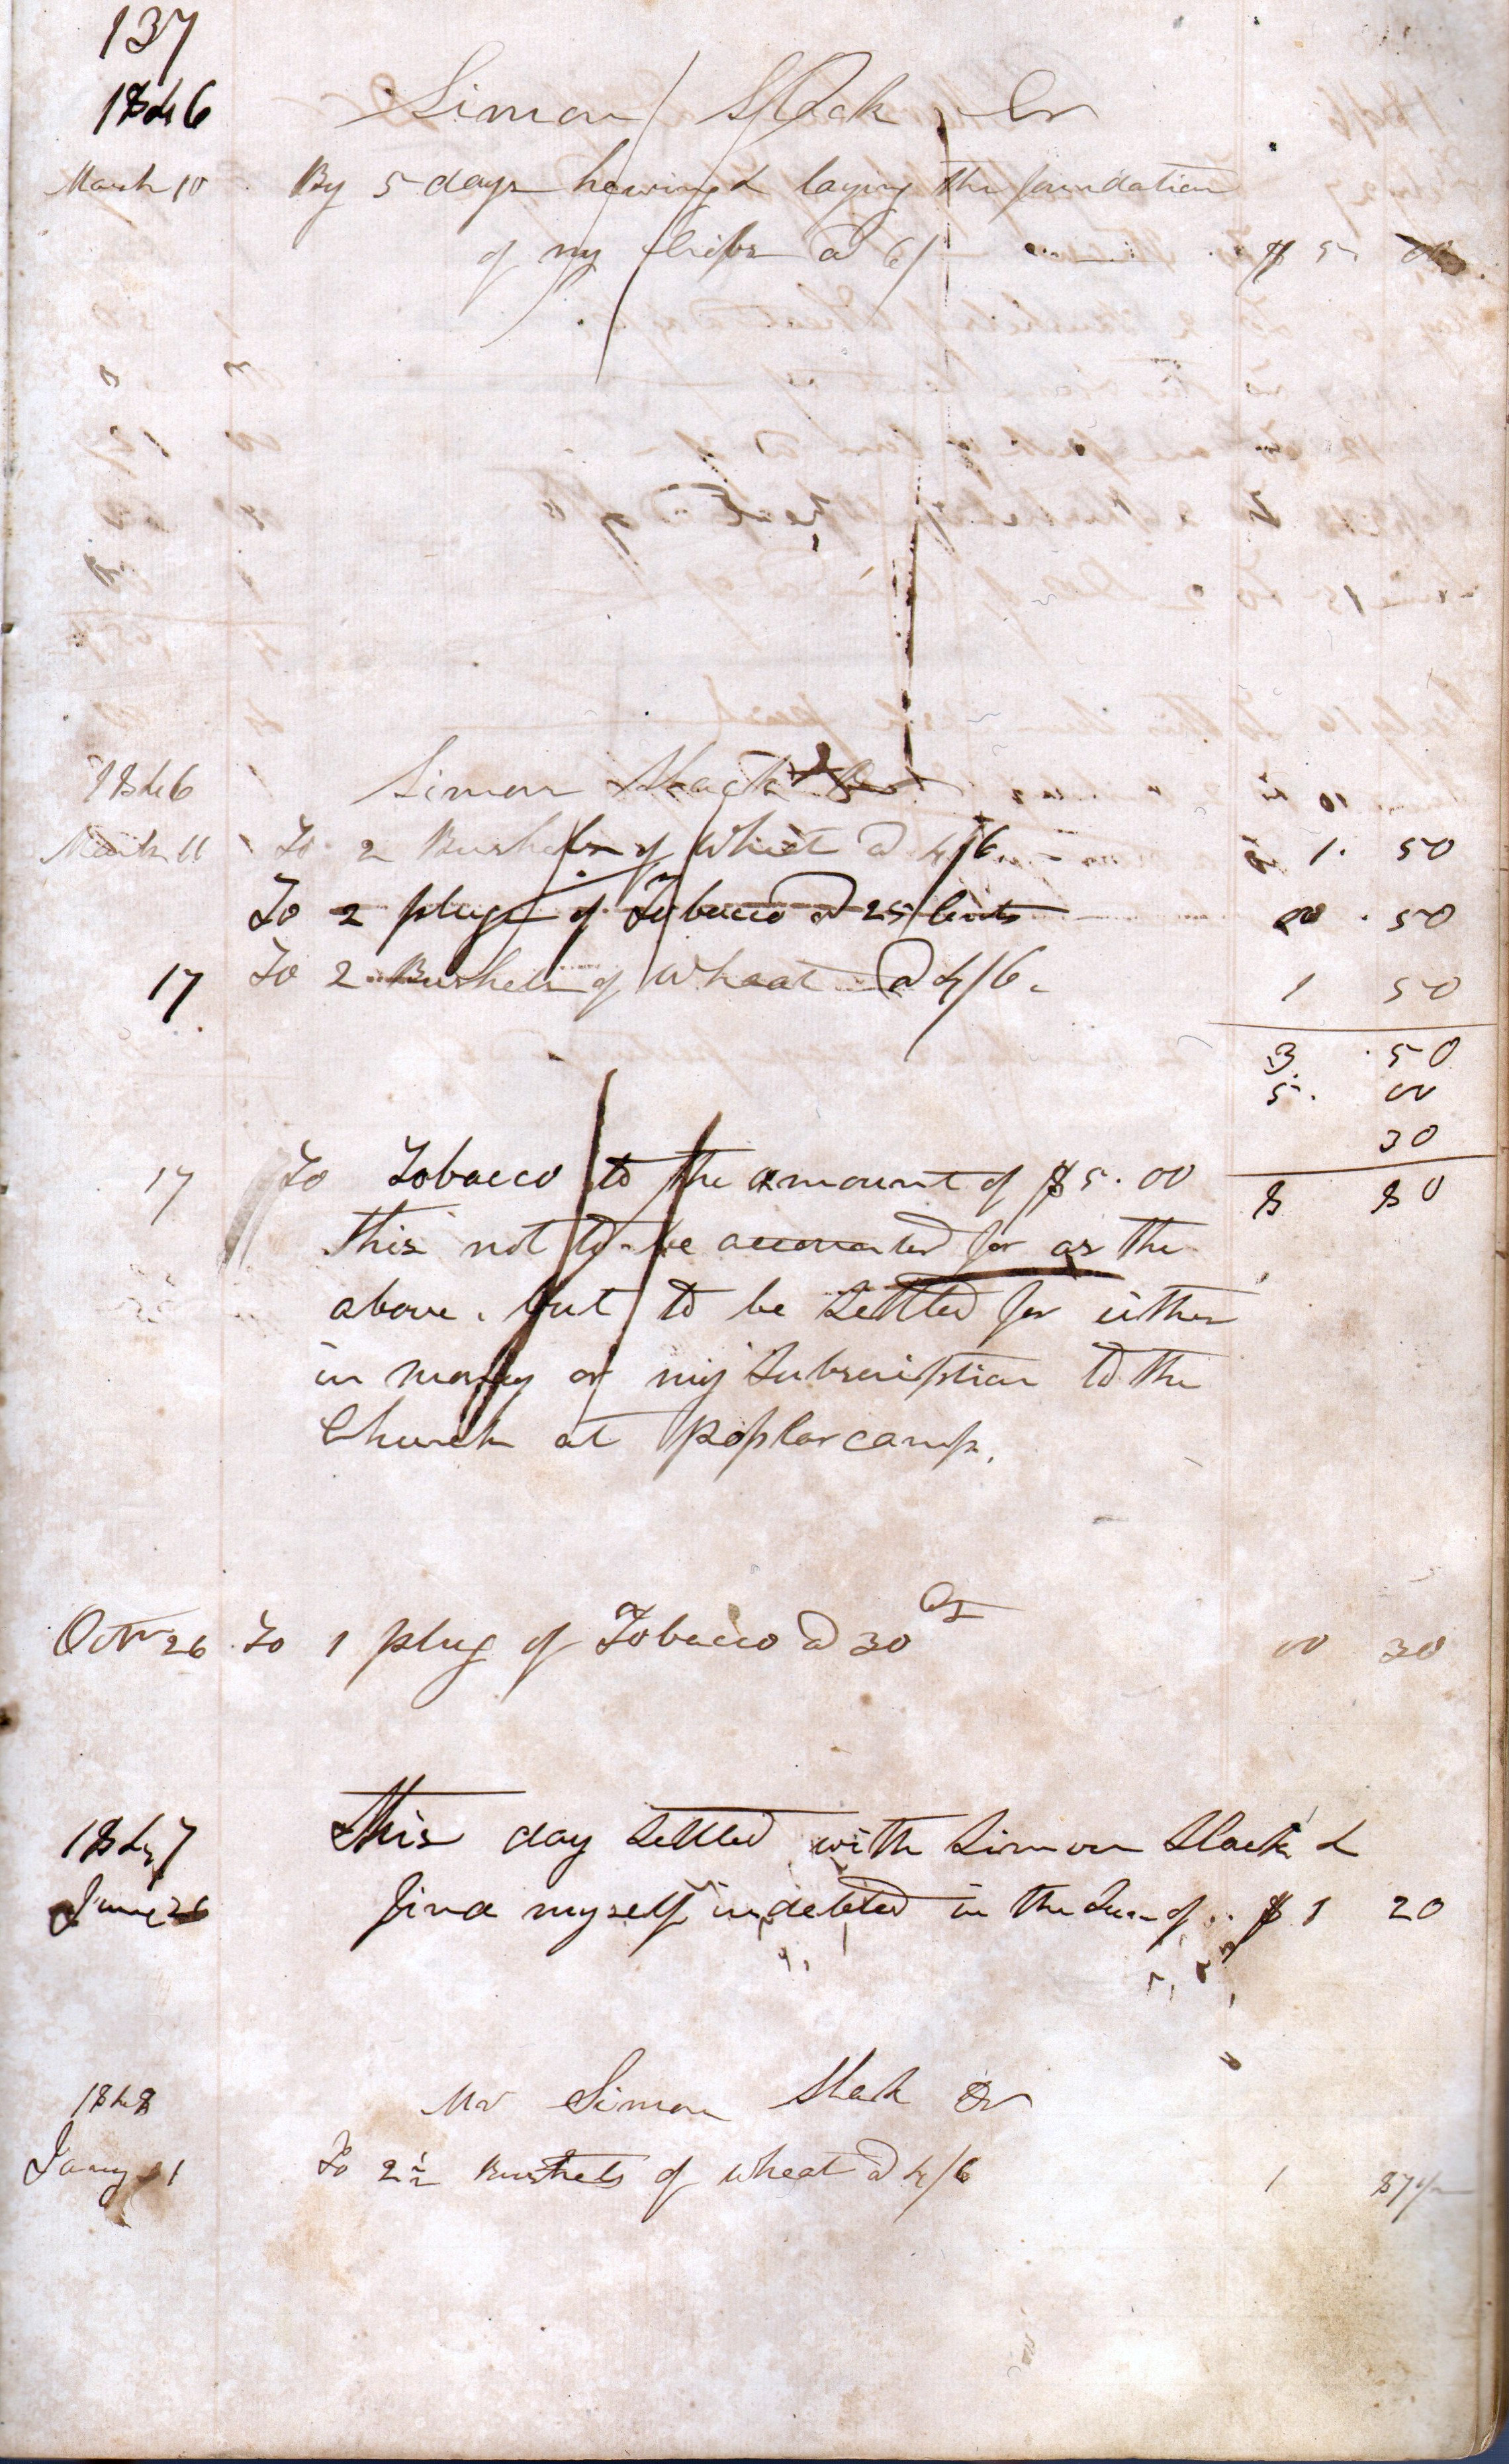 137
1846 Simon Slack Cr
March 10 By 5 days hewing & laying the foundation
of my Cribs @ 6/ $ 5 00
1846 Simon Slack Dr
March 11 To 2 Bushels of Wheat @ 4/6 $ 1. 50
To 2 plugs of Tobacco @ 25 Cents 00 . 50
17 To 2 Bushels of Wheat @ 4/6. 1 50
3. 50
5. 00
30
17 To Tobacco to the amount of $5.00 8 80
This not to be accounted for as the
above. but to be Settled for either
in money or my Subscription to the
Church at Poplarcamp.
Octbr 26 To 1 plug of Tobacco @ 30 Cts 00 30
1847 This day Settled with Simon Slack &
June 26 find myself indebted in the Sum of .. $ 1 20
1848 Mr Simon Slack Dr
Jany 1 To 2 1/2 Bushels of wheat @ 4/6 1 87 1/2